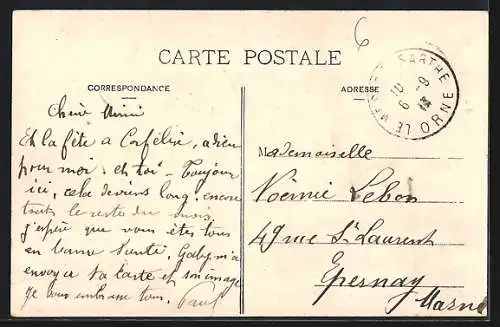 6
CARTE POSTALE
CORRESPONDANCE
ADRESSE
LE MESLE-S-SARTHE
10
6 -9
13
ORNE
Chère Mimi
Et la fête a Corfélix, adieu
pour moi : et toi - Toujours
ici, cela deviens long, encore
tout le reste du mois,
j'espère que vous êtes tous
en bonne santé, Gaby m'a
envoyer sa carte et son image
Je vous embrasse tous, Paul
Mademoiselle
Noëmie Lebon
49 rue St Laurent
Epernay
Marne